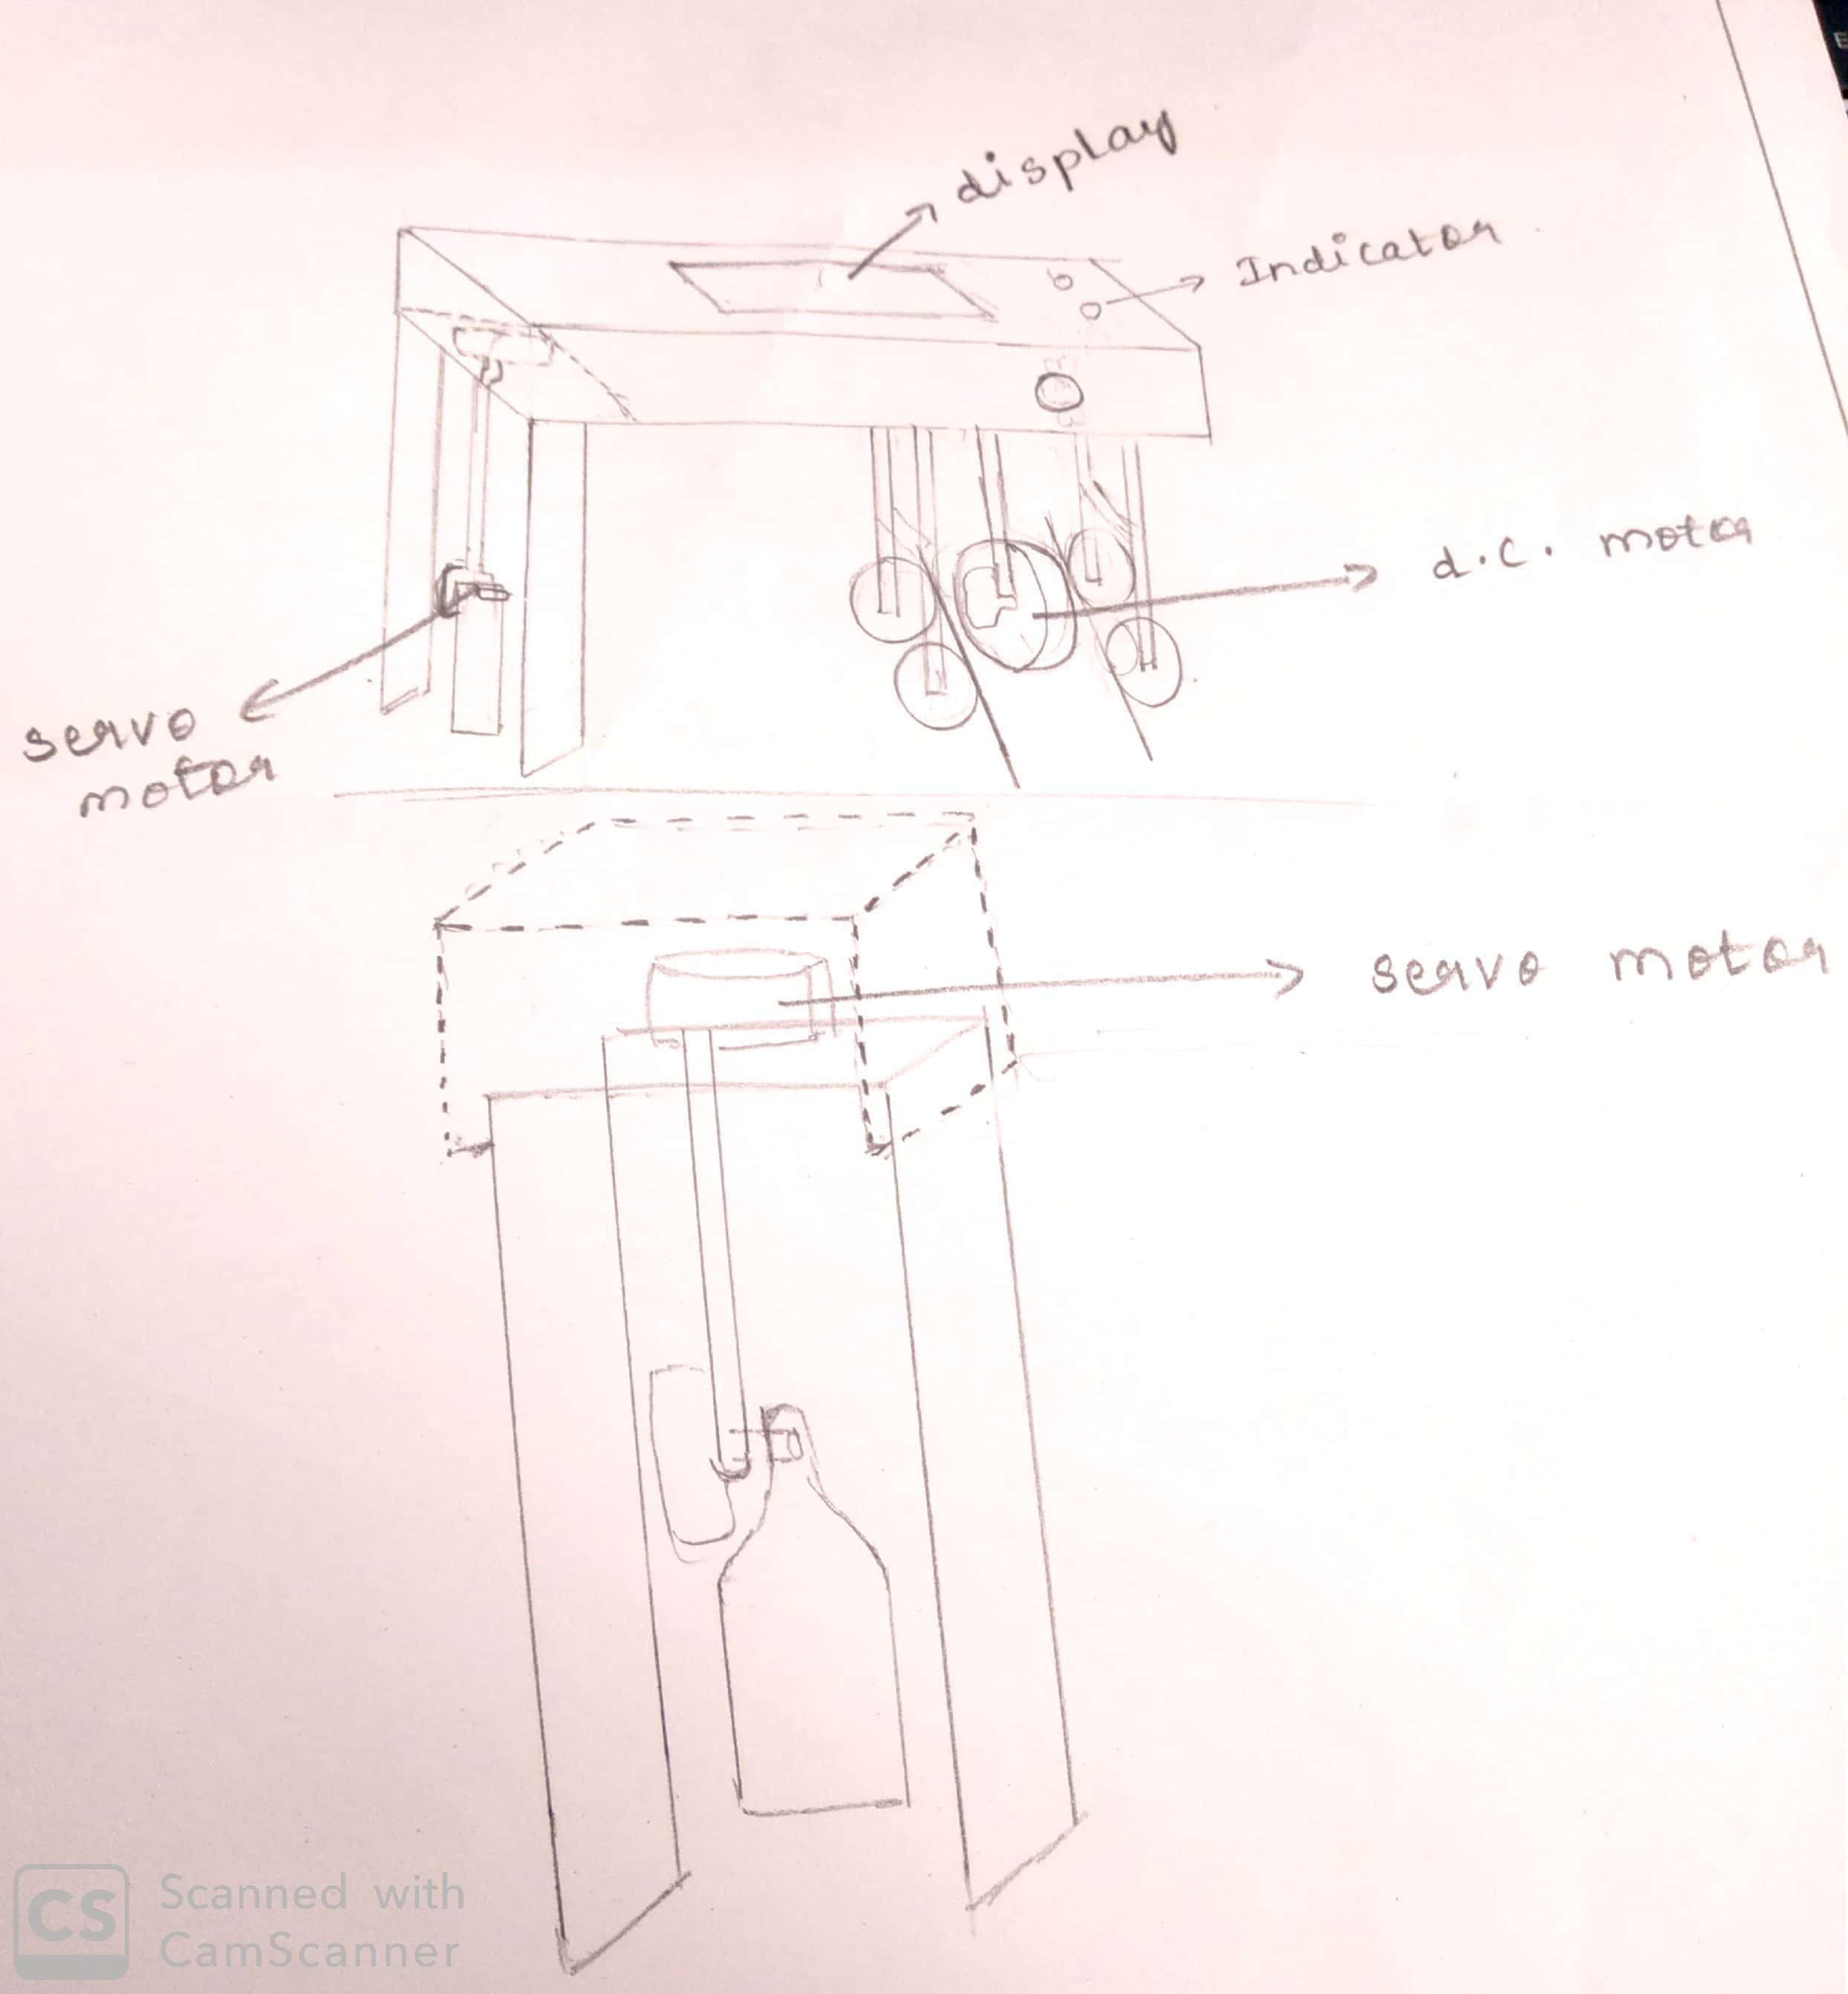 display
Indicator
d.c. motor
servo
motor
servo motor
CS
Scanned with
CamScanner